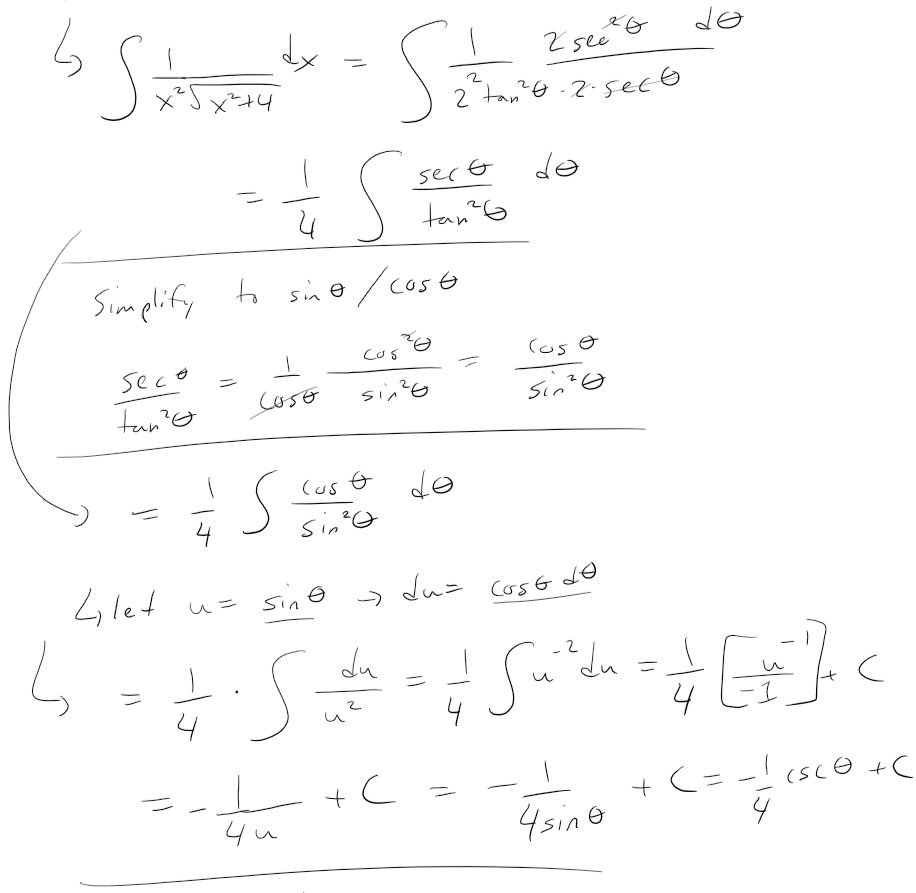 ↳ ∫ 1/(x²√(x²+4)) dx = ∫ 1/(2² tan²θ · 2 · secθ) 2 sec²θ dθ
= 1/4 ∫ secθ/tan²θ dθ
Simplify to sinθ/cosθ
secθ/tan²θ = 1/cosθ cos²θ/sin²θ = cosθ/sin²θ
→ = 1/4 ∫ cosθ/sin²θ dθ
↳ let u = sinθ → du = cosθ dθ
↳ = 1/4 · ∫ du/u² = 1/4 ∫ u⁻² du = 1/4 [u⁻¹/-1] + C
= -1/4u + C = -1/4sinθ + C = -1/4 cscθ + C